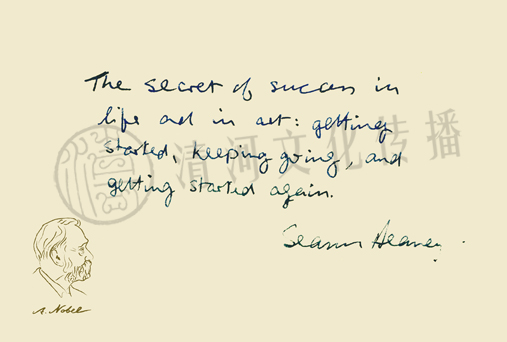 The secret of success in
life and in art: getting
started, keeping going, and
getting started again.
Seamus Heaney
清河文化传播
A. Nobel